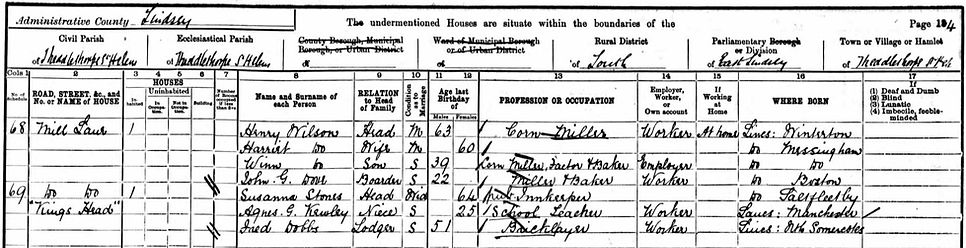 Administrative County Lindsey The undermentioned Houses are situate within the boundaries of the Page 4
Civil Parish Ecclesiastical Parish County Borough, Municipal Borough, or Urban District Ward of Municipal Borough or of Urban District Rural District Parliamentary Borough or Division Town or Village or Hamlet
of Theddlethorpe St Helen of Theddlethorpe S. Helen of of of Louth of East Lindsey of Theddlethorpe St Helen
Cols 1 2 3 4 5 6 7 8 9 10 11 12 13 14 15 16 17
No. of Schedule ROAD, STREET, &c., and No. or NAME of HOUSE HOUSES Inhabited Uninhabited In Occupation Not in Occupation Building Name and Surname of each Person RELATION to Head of Family Condition as to Marriage Age last Birthday of Males Females PROFESSION OR OCCUPATION Employer, Worker, or Own account If Working at Home WHERE BORN If (1) Deaf and Dumb (2) Blind (3) Lunatic (4) Imbecile, feeble-minded
68 Mill Lane 1 Henry Wilson Head M 63 Corn Miller Worker At home Lincs: Winterton
Harriet Do Wife M 60 Do Messingham
Winn Do Son S 39 Corn Miller, Factor & Baker Employer Do Do
John. G. Dove Boarder S 22 Miller & Baker Worker Do Boston
69 Do Do 1 Susanna Stones Head Wid 64 Innkeeper Do Saltfleetby
"Kings Head" Agnes. G. Kewley Niece S 25 School Teacher Worker Lancs: Manchester
Fred Dobbs Lodger S 51 Bricklayer Worker Lincs: Nth Somercotes